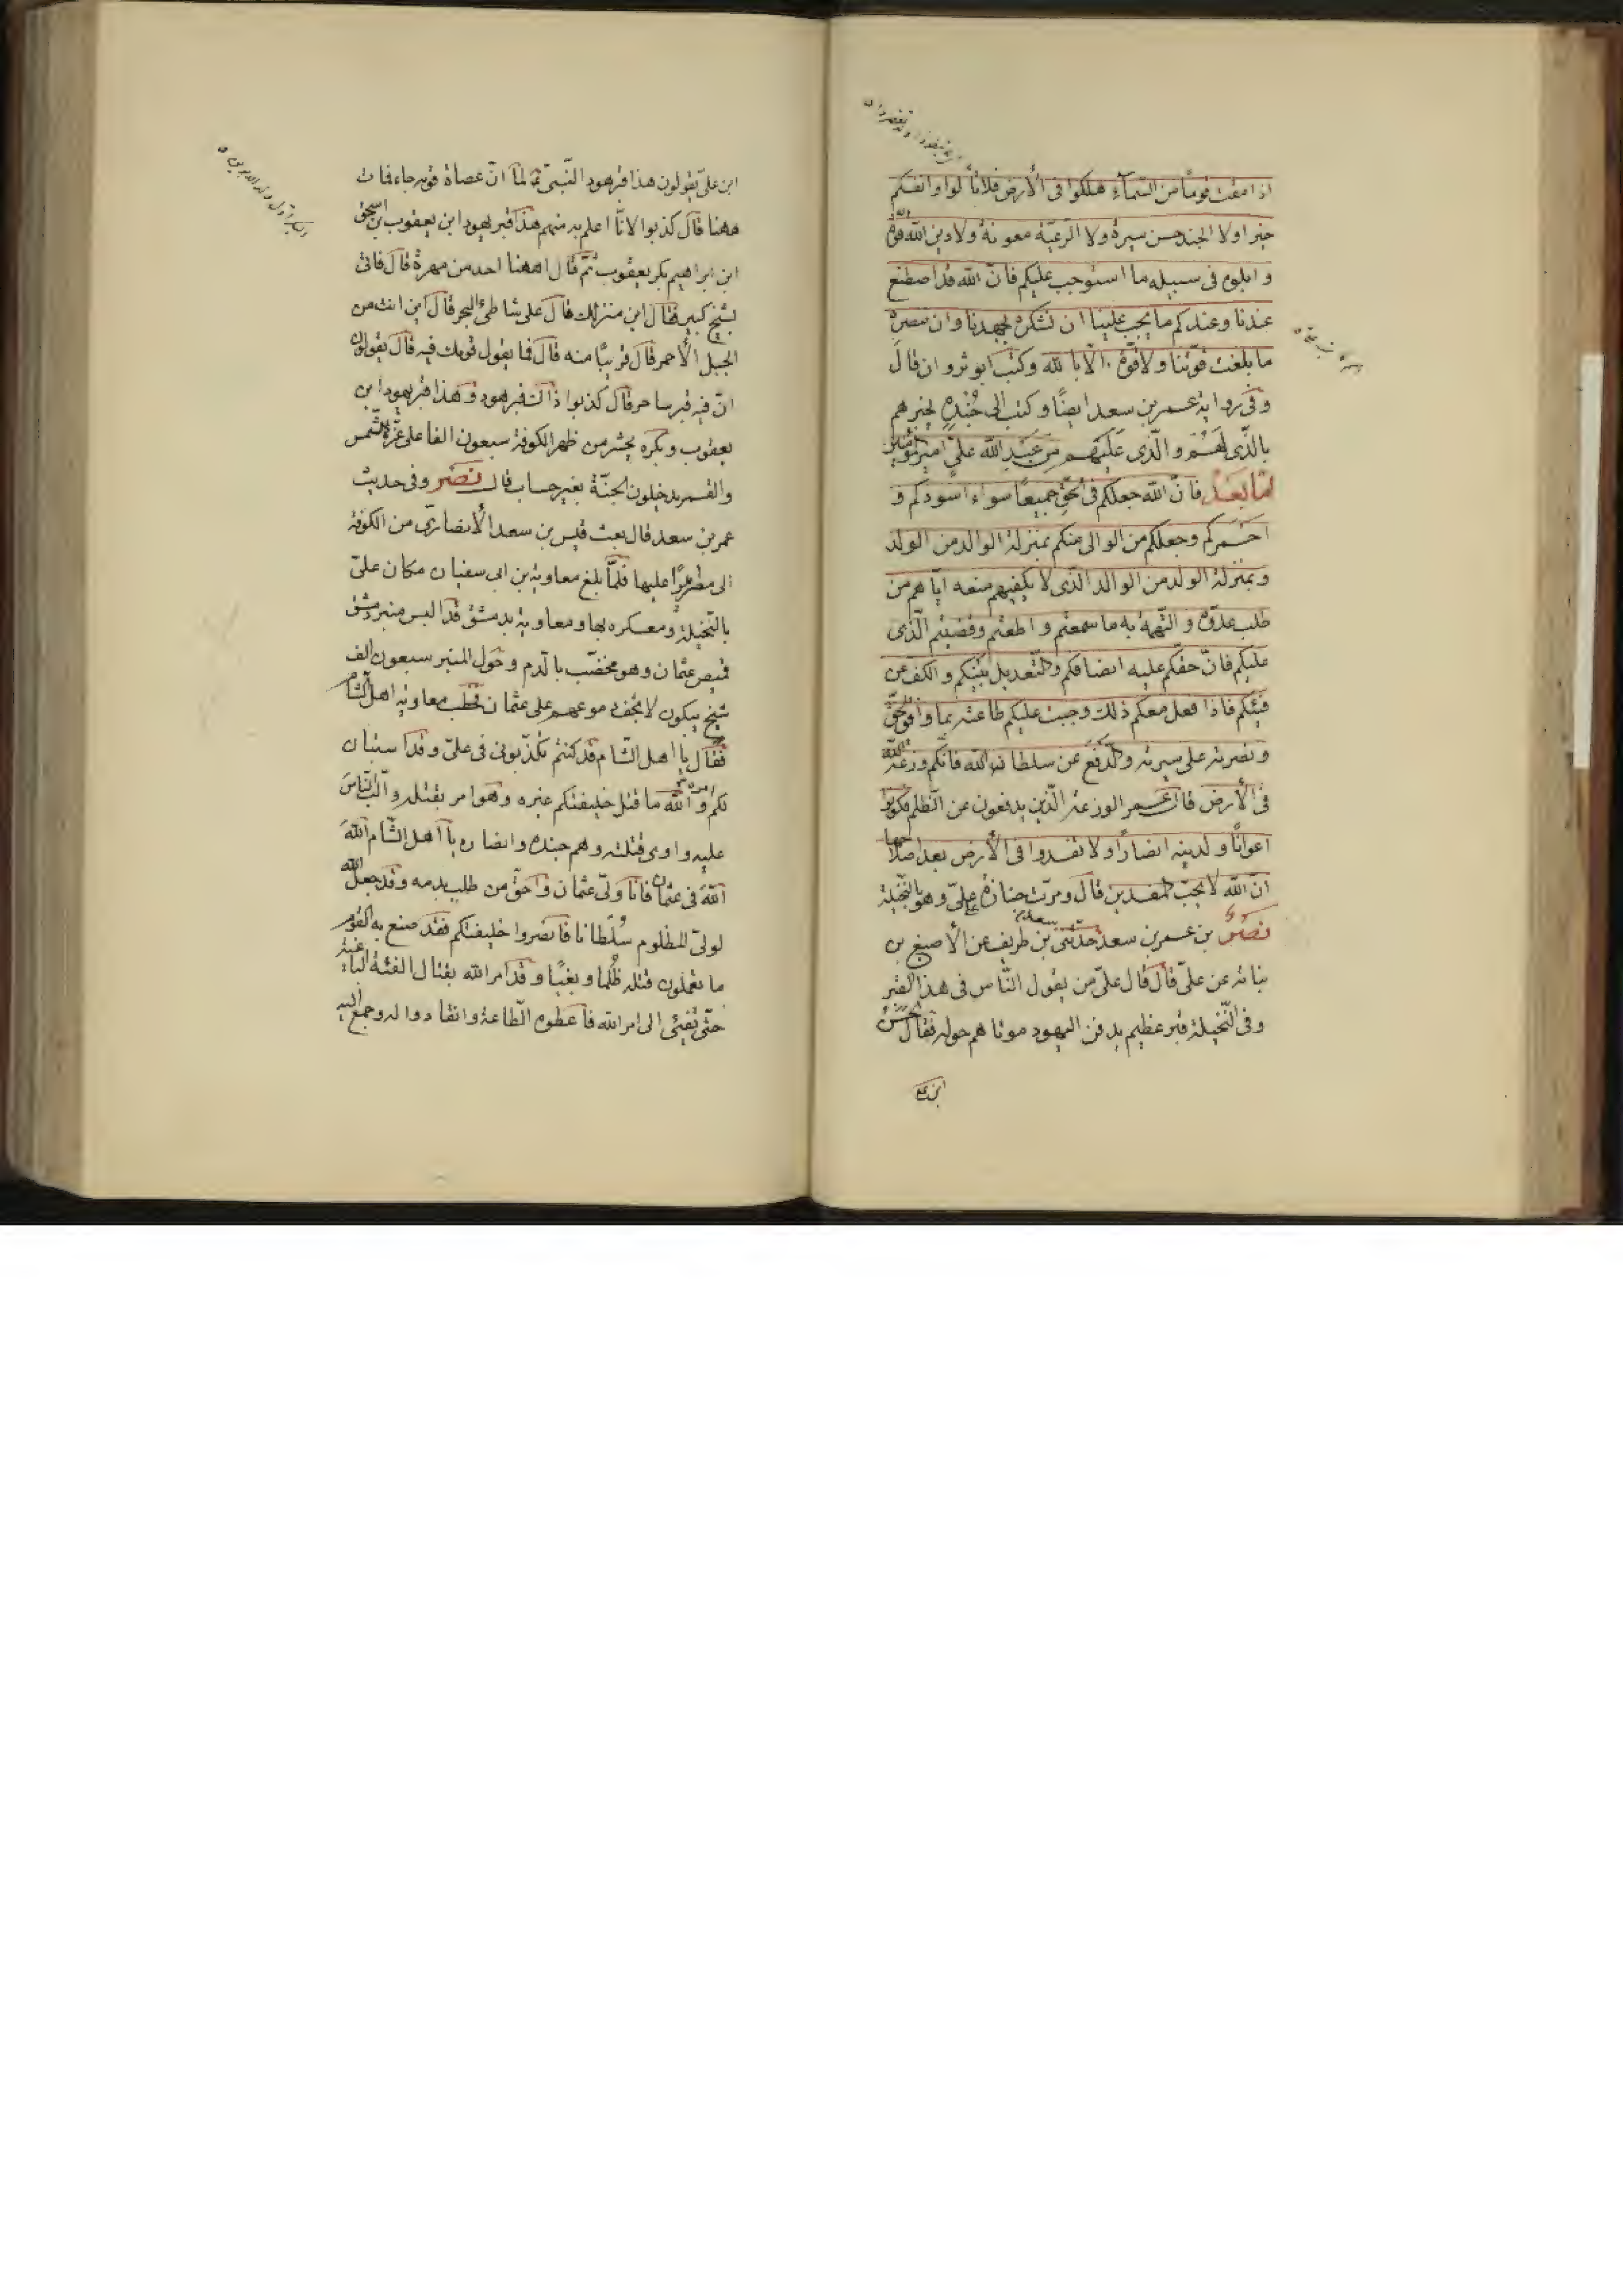 اذا مقت قومًا من السّمآءِ هلكوا فى الأرض فلا تألوا وانفسكم
خيرا ولا الجند حسن سيرة ولا الرّعيّة معونة ولا دين اللّه قوّة
و ابلوه فى سبيله ما استوجب عليكم فانّ اللّه قد اصطنع
عندنا وعندكم ما يجب علينا ان نشكره بجهدنا وان ننصره
ما بلغت قوّتنا ولا قوّة الّا باللّه وكتب ابو ثروان قال
وفى رواية عمر بن سعد ايضًا وكتب الى جُنْدِهِ يخبرهم
بالّذى لَهُمْ والّذى عَلَيْهِم مِن عَبْدِ اللّه علىّ امير المؤمنين
امّا بَعْدُ فانّ اللّه جعلكم فى الحقّ جميعًا سواء اسودكم و
احمركم وجعلكم من الوالى منكم بمنزلة الوالد من الولد
وبمنزلة الولد من الوالد الّذى لا يكفيهم منعه ايّاهم من
طلب عدوّه والتّهمة به ما سمعتم واطعتم وقضيتم الّذى
عليكم فانّ حقّكم عليه انصافكم والتّعديل بينكم والكفّ عن
فيئكم فاذا فعل معكم ذلك وجبت عليكم طاعته بما وافق الحقّ
ونصرته على سيرته والدّفع عن سلطان اللّه فانّكم وزعة اللّه
فى الأرض قال عمر الوزعة الّذين يدفعون عن الظّلم فكونوا له
اعوانًا ولدينه انصارًا ولا تفسدوا فى الأرض بعد اصلاحها
انّ اللّه لا يحبّ المفسدين قال ومرّت جنازة على علىّ وهو بالنّخيلة
نصر بن عمر بن سعد حدّثنى سعد بن طريف عن الأصبغ بن
نباتة عن علىّ قال قال علىّ من يقول النّاس فى هذا القبر
وفى النّخيلة قبر عظيم يدفن اليهود موتاهم حوله فقال الحسن
ابن على
ابن علىّ يقولون هذا قبر هود النّبىّ ع لمّا انّ عصاه قومه جاء فمات
ههنا قال كذبوا لأنا اعلم به منهم هذا قبر يهودا ابن يعقوب بن اسحق
ابن ابراهيم بكر يعقوب ثمّ قال اههنا احد من مهرة قال فاتى
بشيخ كبير فقال اين منزلك قال على شاطئ البحر قال اين انت من
الجبل الأحمر قال قريبًا منه قال فما يقول قومك فيه قال يقولون
انّ فيه قبر ساحر قال كذبوا ذاك قبر هود وهذا قبر يهودا ابن
يعقوب وبكره يحشر من ظهر الكوفة سبعون الفا على غرّة الشّمس
والقمر يدخلون الجنّة بغير حساب قال نصر وفى حديث
عمر بن سعد قال بعث قيس بن سعد الأنصارىّ من الكوفة
الى مصر اميرًا عليها فلمّا بلغ معاوية بن ابى سفيان مكان علىّ
بالنّخيلة ومعسكره بها ومعاوية بدمشق قد البس منبر دمشق
قميص عثمان وهو مخضّب بالدّم وحول المنبر سبعون الف
شيخ يبكون لا تجفّ دموعهم على عثمان خطب معاوية اهل الشّام
فقال يا اهل الشّام قد كنتم تكذّبونى فى علىّ وقد استبان
لكم امره واللّه ما قتل خليفتكم غيره وهو امر بقتله والّب النّاس
عليه واوى قتلته وهم جنده وانصاره يا اهل الشّام اللّهَ
اللّهَ فى عثمان فانا ولىّ عثمان واحقّ من طلب بدمه وقد جعل اللّه
لولىّ المظلوم سُلطانا فانصروا خليفتكم فقد صنع به القوم
ما تعلمون قتله ظُلما وبغيًا وقد امر اللّه بقتال الفئة الباغية
حتّى تفيئ الى امر اللّه فاعطوه الطّاعة وانقادوا له وجمع اليه